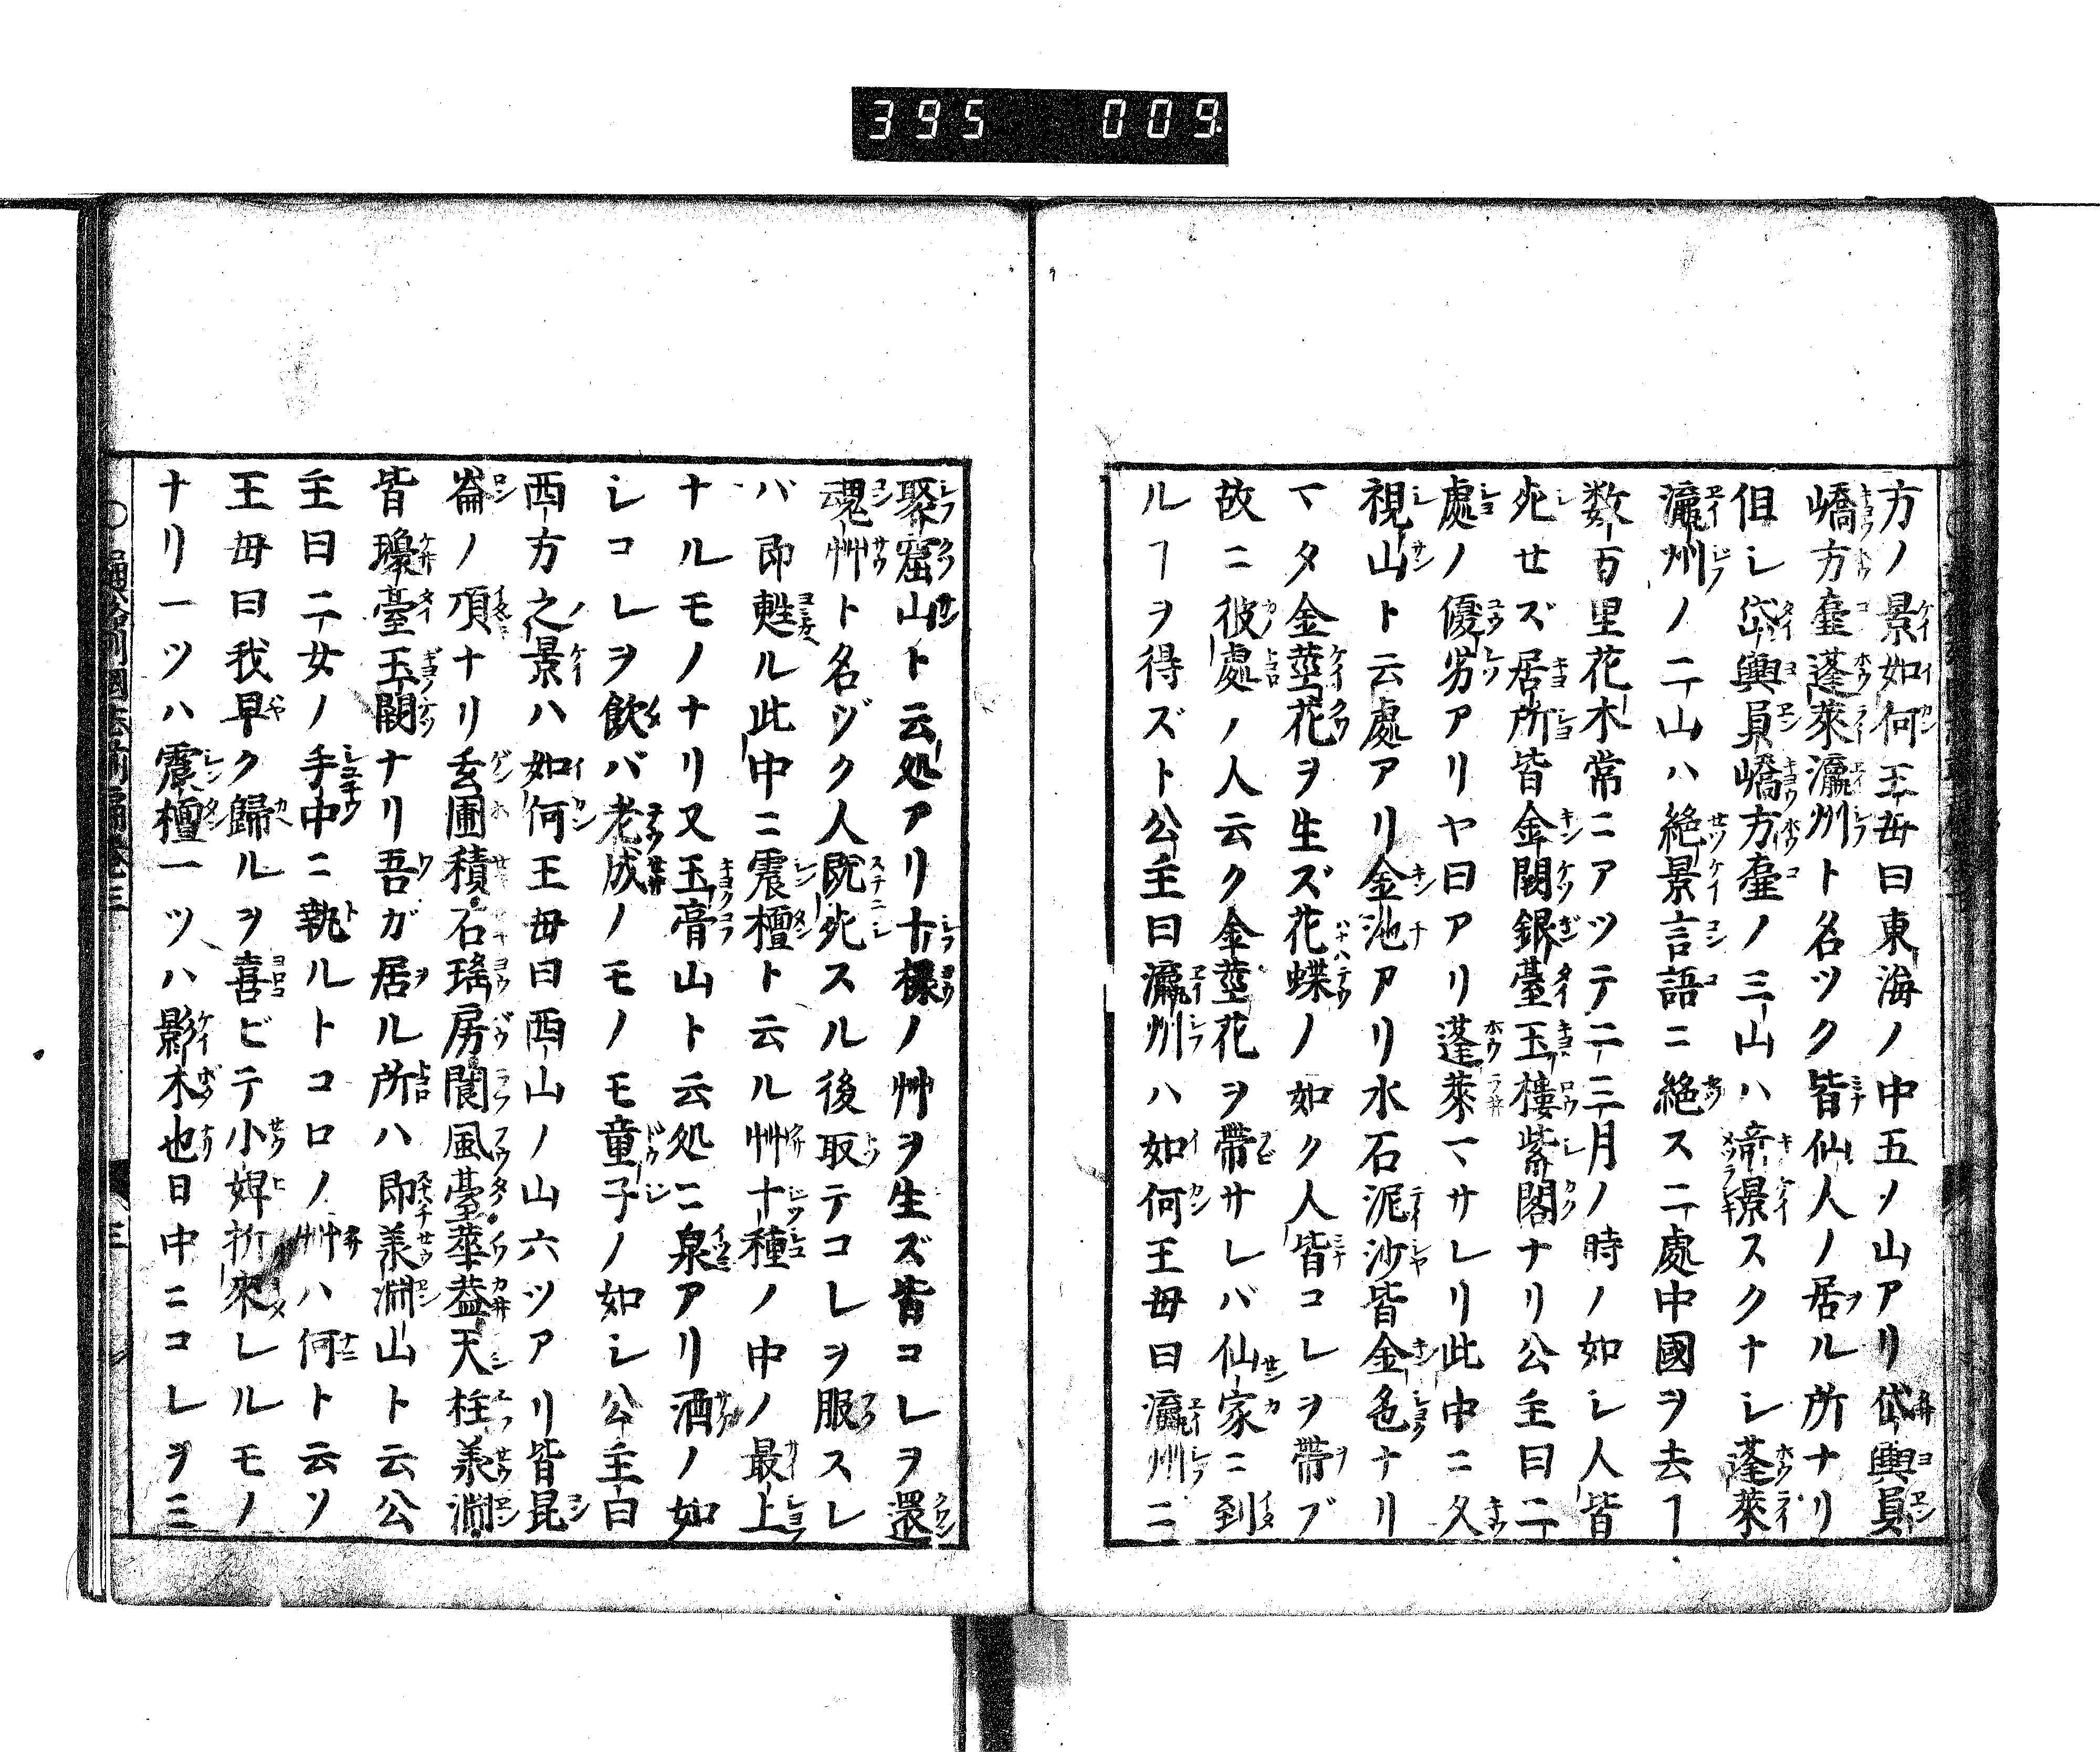 395 009
方ノ景如何王母曰東海ノ中五ノ山アリ岱輿員
嶠方壷蓬萊瀛州ト名ツク皆仙人ノ居ル所ナリ
但シ岱輿員嶠方壷ノ三山ハ竒景スクナシ蓬萊
瀛州ノ二山ハ絶景言語ニ絶ス二處中國ヲ去ヿ
数百里花木常ニアツテ二三月ノ時ノ如シ人皆
死セズ居所皆金闕銀臺玉樓紫閣ナリ公主曰二
處ノ優劣アリヤ曰アリ蓬萊マサレリ此中ニ久
視山ト云處アリ金池アリ水石泥沙皆金色ナリ
マタ金莖花ヲ生ズ花蝶ノ如ク人皆コレヲ帶ブ
故ニ彼處ノ人云ク金莖花ヲ帶サレバ仙家ニ到
ルヿヲ得ズト公主曰瀛州ハ如何王母曰瀛州ニ
聚窟山ト云処アリ十様ノ艸ヲ生ズ皆コレヲ還
魂艸ト名ヅク人既死スル後取テコレヲ服スレ
バ即甦ル此中ニ震檀ト云ル艸十種ノ中ノ最上
ナルモノナリ又玉膏山ト云処ニ泉アリ酒ノ如
シコレヲ飲バ老成ノモノモ童子ノ如シ公主白
西方之景ハ如何王母曰西山ノ山六ツアリ皆昆
崙ノ頂ナリ玄圃積石瑤房閬風臺華蓋天柱羕淵
皆瓊臺玉闕ナリ吾ガ居ル所ハ即羕淵山ト云公
主曰二女ノ手中ニ執ルトコロノ艸ハ何ト云ソ
王母曰我早ク歸ルヲ喜ビテ小婢折來レルモノ
ナリ一ツハ震檀一ツハ影木也日中ニコレヲミ